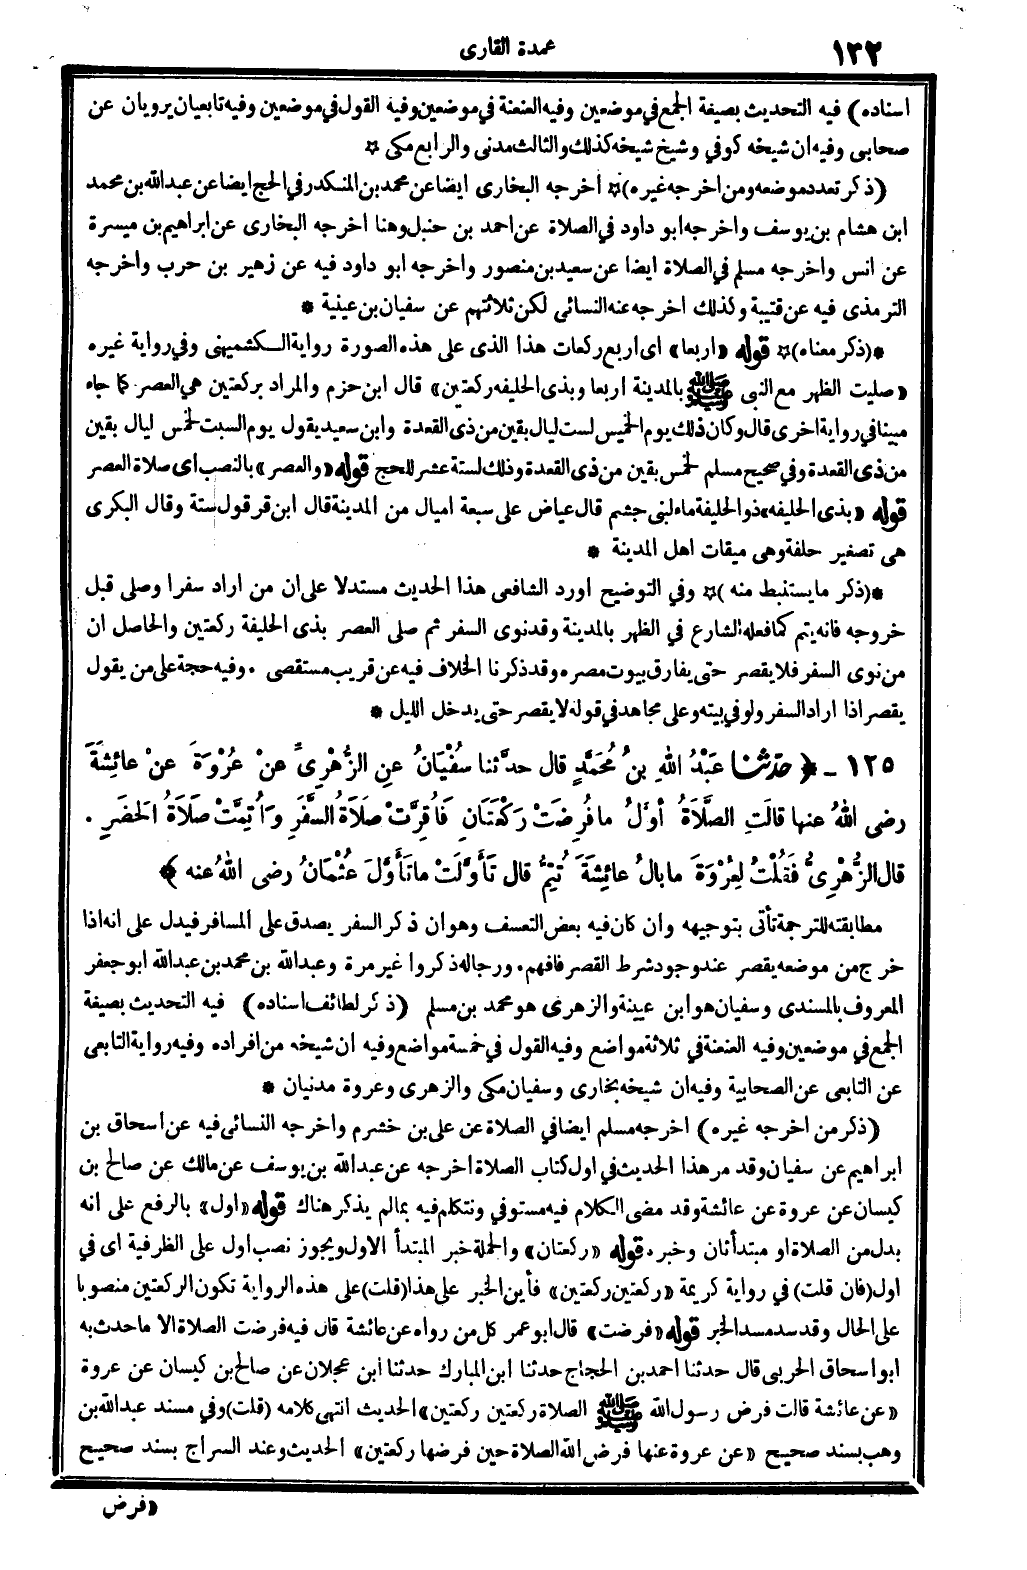 ١٣٢
عمدة القارى
اسناده) فيه التحديث بصيغة الجمع في موضعين وفيه العنعنة في موضعين وفيه القول في موضعين وفيه تابعيان يرويان عن
صحابى وفيه ان شيخه كوفي وشيخ شيخه كذلك والثالث مدنى والرابع مكى ☆
(ذكر تعدد موضعه ومن اخرجه غيره) ☆ اخرجه البخارى ايضا عن محمد بن المنكدر في الحج ايضا عن عبدالله بن محمد
ابن هشام بن يوسف واخرجه ابو داود في الصلاة عن احمد بن حنبل وهنا اخرجه البخارى عن ابراهيم بن ميسرة
عن انس واخرجه مسلم في الصلاة ايضا عن سعيد بن منصور واخرجه ابو داود فيه عن زهير بن حرب واخرجه
الترمذى فيه عن قتيبة وكذلك اخرجه عنه النسائى لكن ثلاثتهم عن سفيان بن عينية *
*(ذكر معناه)☆ قوله «اربعا» اى اربع ركعات هذا الذى على هذه الصورة رواية الكشميهنى وفي رواية غيره
«صليت الظهر مع النبى ﷺ بالمدينة اربعا وبذى الحليفه ركعتين» قال ابن حزم والمراد بركعتين هي العصر كما جاء
مبينا في رواية اخرى قال وكان ذلك يوم الخميس لست ليال بقين من ذى القعدة وابن سعيد يقول يوم السبت لخمس ليال بقين
من ذى القعدة وفي صحيح مسلم لخمس بقين من ذى القعدة وذلك لستة عشر للحج قوله «والعصر» بالنصب اى صلاة العصر
قوله «بذى الحليفه» ذو الحليفة ماء لبنى جشم قال عياض على سبعة اميال من المدينة قال ابن قرقول ستة وقال البكرى
هى تصغير حلفة وهى ميقات اهل المدينة *
*(ذكر ما يستنبط منه)☆ وفي التوضيح اورد الشافعى هذا الحديث مستدلا على ان من اراد سفرا وصلى قبل
خروجه فانه يتم كما فعله الشارع في الظهر بالمدينة وقد نوى السفر ثم صلى العصر بذى الحليفة ركعتين والحاصل ان
من نوى السفر فلا يقصر حتى يفارق بيوت مصره وقد ذكرنا الخلاف فيه عن قريب مستقصى . وفيه حجة على من يقول
يقصر اذا اراد السفر ولو في بيته وعلى مجاهد في قوله لا يقصر حتى يدخل الليل *
١٢٥ - ﴿ حدثنا عَبْدُ اللهِ بنُ مُحَمَّدٍ قال حدَّثنا سفْيَانُ عنِ الزُّهْرِىِّ عنْ عُرْوَةَ عنْ عائِشةَ
رضى اللهُ عنها قالَتِ الصَّلَاةُ أوَّلُ ما فُرِضَتْ رَكْعَتَانِ فَأُقِرَّتْ صَلَاةُ السَّفَرِ وَأُتِمَّتْ صَلَاةُ الحَضَرِ .
قال الزُّهْرِىُّ فَقُلْتُ لِعُرْوَةَ ما بالُ عائِشَةَ تُتِمُّ قال تَأَوَّلَتْ ما تَأَوَّلَ عُثْمَانُ رضى اللهُ عنه ﴾
مطابقته للترجمة تأتى بتوجيهه وان كان فيه بعض التعسف وهو ان ذكر السفر يصدق على المسافر فيدل على انه اذا
خرج من موضعه يقصر عند وجود شرط القصر فافهم . ورجاله ذكروا غير مرة وعبدالله بن محمد بن عبدالله ابو جعفر
المعروف بالمسندى وسفيان هو ابن عيينة والزهرى هو محمد بن مسلم (ذكر لطائف اسناده) فيه التحديث بصيغة
الجمع في موضعين وفيه العنعنة في ثلاثة مواضع وفيه القول في خمسة مواضع وفيه ان شيخه من افراده وفيه رواية التابعى
عن التابعى عن الصحابية وفيه ان شيخه بخارى وسفيان مكى والزهرى وعروة مدنيان *
(ذكر من اخرجه غيره) اخرجه مسلم ايضا في الصلاة عن على بن خشرم واخرجه النسائى فيه عن اسحاق بن
ابراهيم عن سفيان وقد مر هذا الحديث في اول كتاب الصلاة اخرجه عن عبدالله بن يوسف عن مالك عن صالح بن
كيسان عن عروة عن عائشة وقد مضى الكلام فيه مستوفي ونتكلم فيه بما لم يذكر هناك قوله «اول» بالرفع على انه
بدل من الصلاة او مبتدأ ثان وخبره قوله «ركعتان» والجملة خبر المبتدأ الاول ويجوز نصب اول على الظرفية اى في
اول (فان قلت) في رواية كريمة «ركعتين ركعتين» فأين الخبر على هذا (قلت) على هذه الرواية تكون الركعتين منصوبا
على الحال وقد سد مسد الخبر قوله «فرضت» قال ابو عمر كل من رواه عن عائشة قال فيه فرضت الصلاة الا ما حدث به
ابو اسحاق الحربى قال حدثنا احمد بن الحجاج حدثنا ابن المبارك حدثنا ابن عجلان عن صالح بن كيسان عن عروة
«عن عائشة قالت فرض رسول الله ﷺ الصلاة ركعتين ركعتين» الحديث انتهى كلامه (قلت) وفي مسند عبدالله بن
وهب بسند صحيح «عن عروة عنها فرض الله الصلاة حين فرضها ركعتين» الحديث وعند السراج بسند صحيح
«فرض